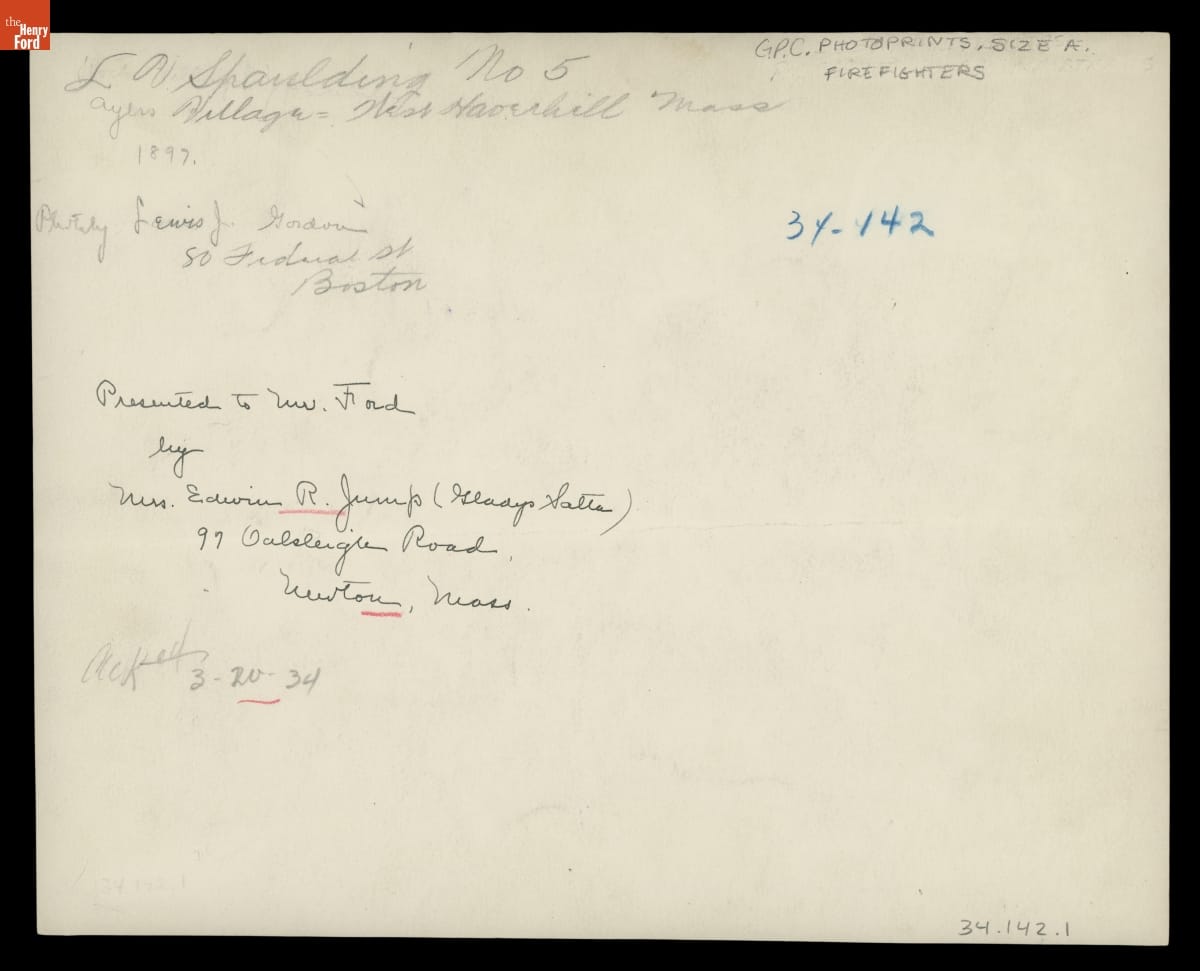 the
Henry
Ford
G.P.C. PHOTOPRINTS. SIZE A.
FIREFIGHTERS
Spaulding No 5
Ayers Village = West Haverhill Mass
1897.
Photo by Lewis J. Gordon
80 Federal St
Boston
34-142
Presented to Mr. Ford
by
Mrs. Edwin R. Jump (Gladys
97 Oakleigh Road,
Newton, Mass.
3-20-34
34.142.1
34.142.1